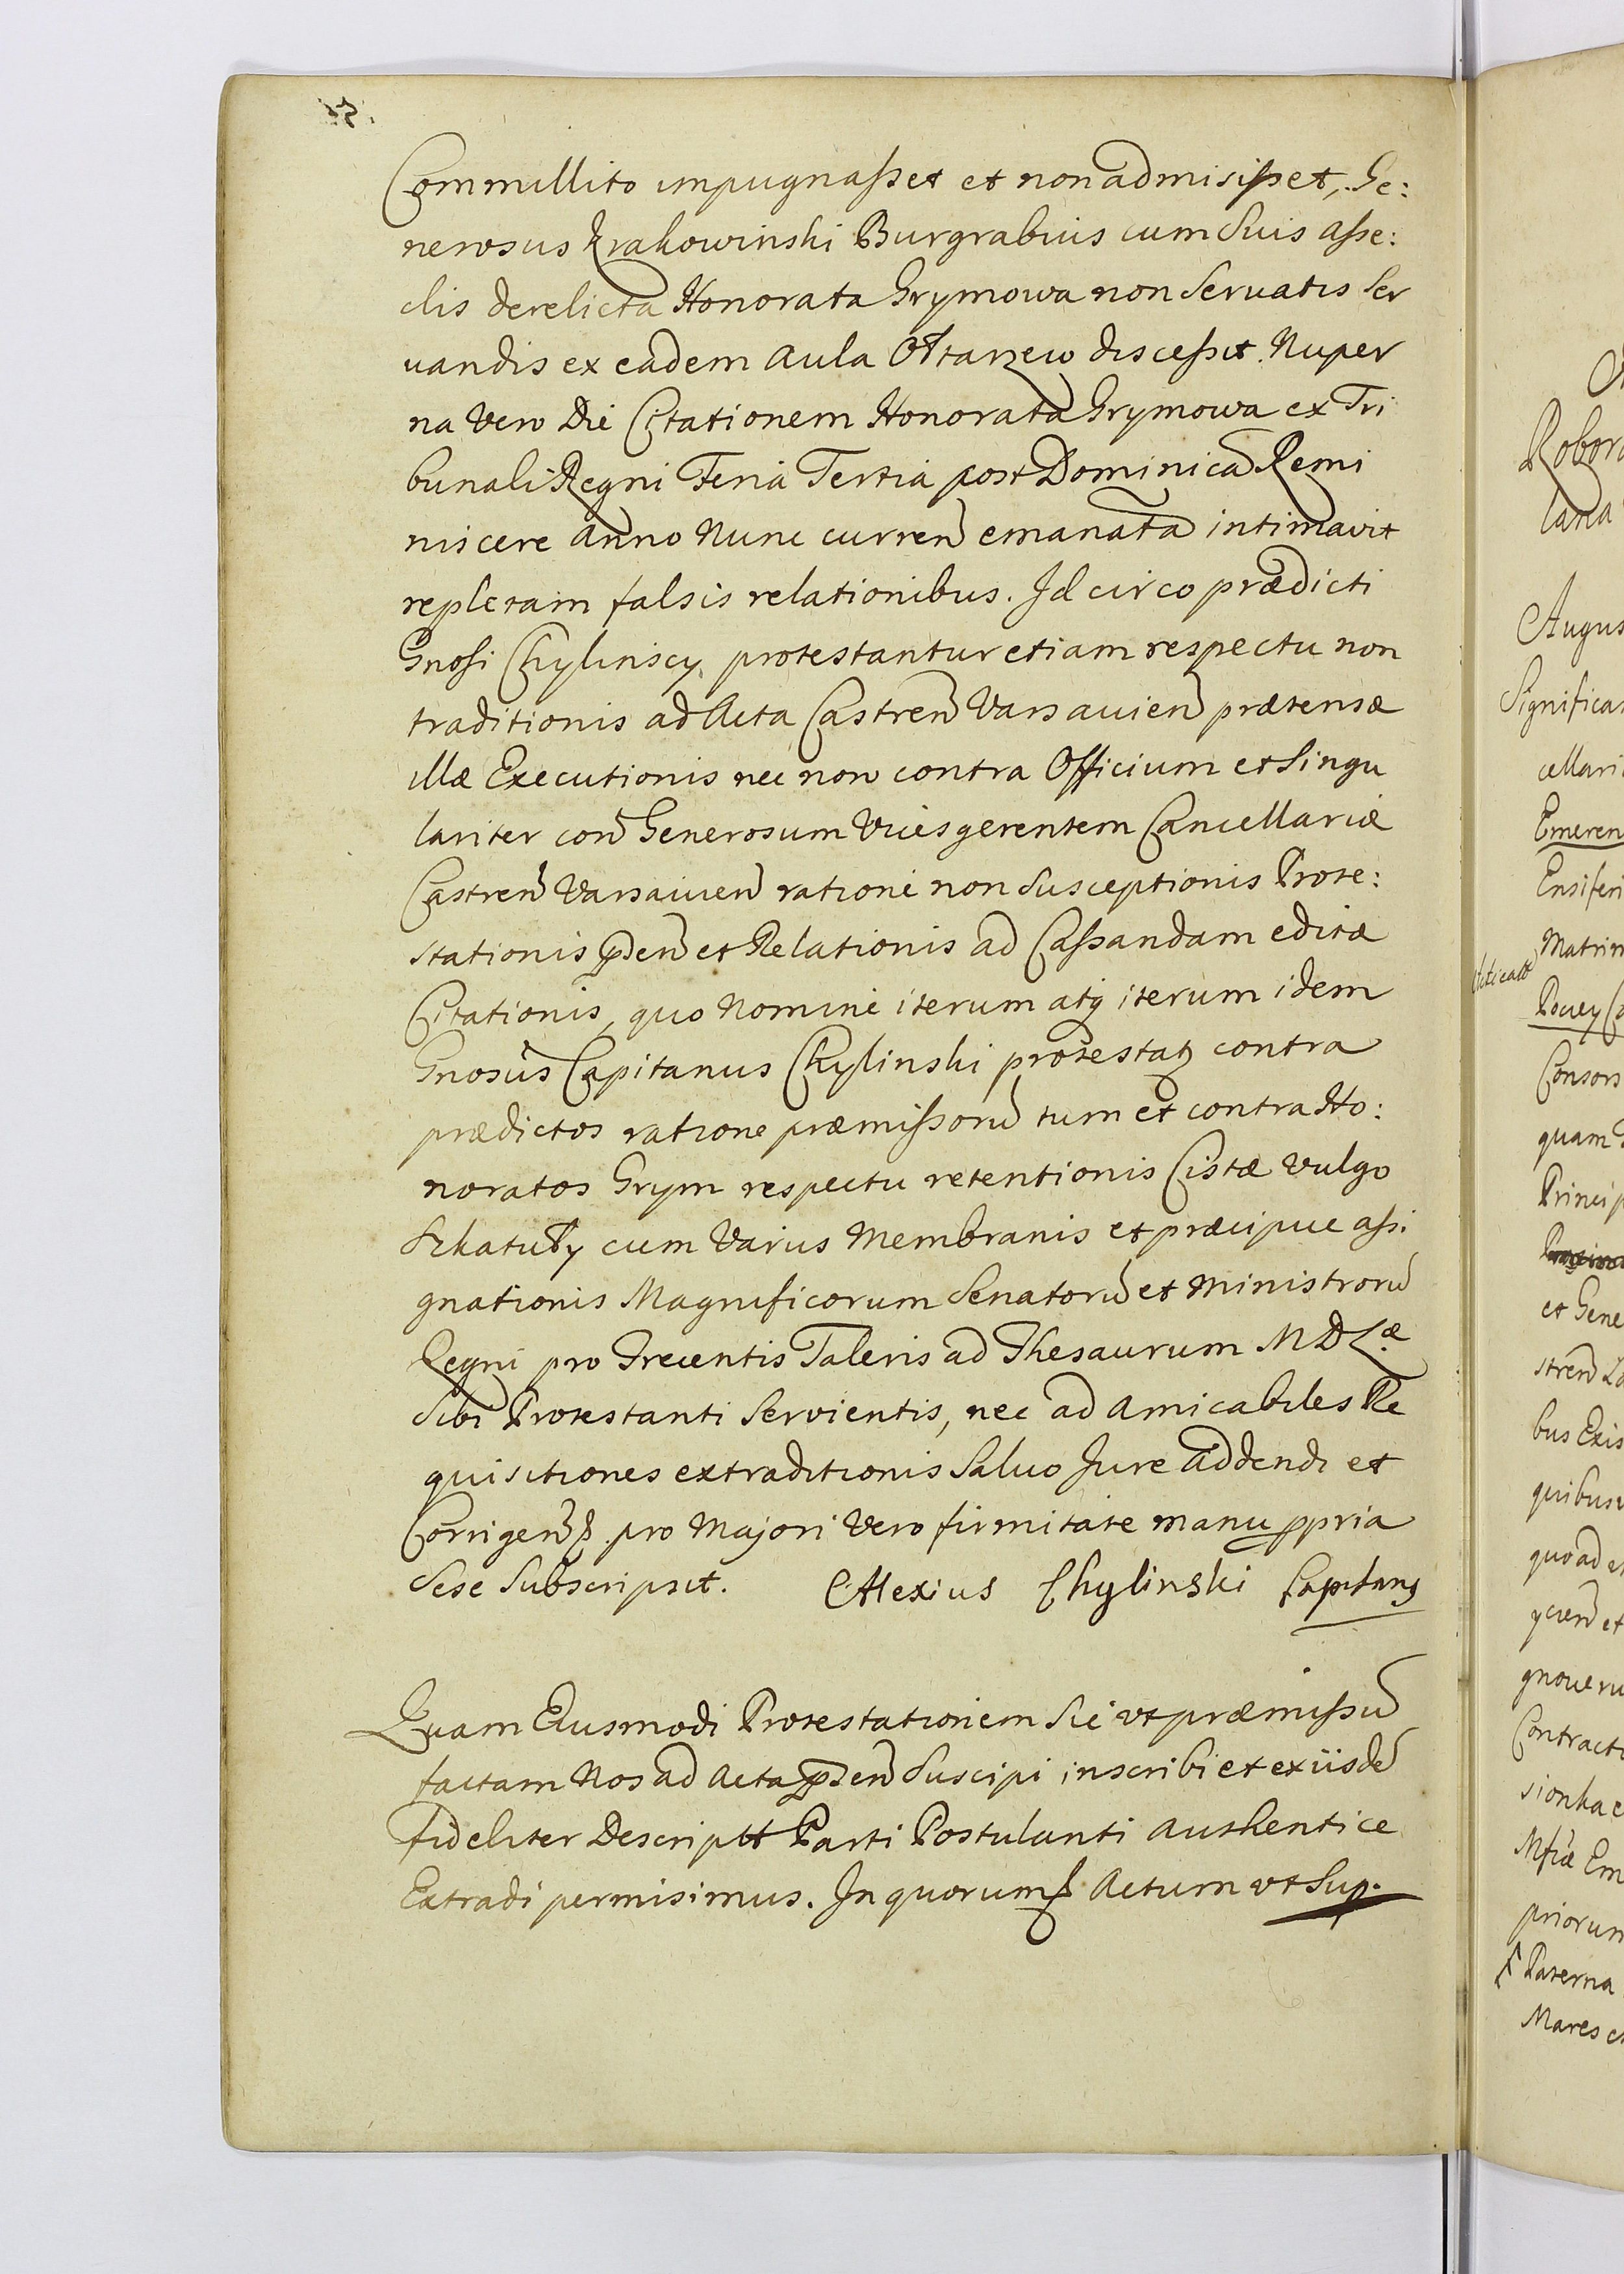 Commilito impugnasset et non admisisset, Ge:
nerosus Krakowinski Burgrabius cum Suis asse:
clis derelicta Honorata Grymowa non Servatis Ser
uandis ex eadem Aula Ołtarzew discessit. Nuper
na Vero Die Citationem Honorata Grymowa ex Tri
bunali Regni Feria Tertia post Dominicã Remi
niscere Anno Nunc curren emanatã intimavit
repletam falsis relationibus. Id circo prædicti
Gnosi Chylinscy protestantur etiam respectu non
traditionis ad Acta Castren Varsavien prætensæ
illæ Executionis nec non contra Officium et Singu
lariter con Generosum Vicesgerentem Cancellariæ
Castren Varsavien ratione non Susceptionis Prote:
stationis pden et Relationis ad Cassandam editæ
Citationis, quo Nomine iterum atq iterum idem
Gnosus Capitanus Chylinski protestat contra
prædictos ratione præmissorũ tum et contra Ho:
noratos Grym respectu retentionis Cistæ Vulgo
Szkatuły cum Variis Membranis et præcipue assi
gnationis Magnificorum Senatorũ et Ministrorũ
Regni pro Trecentis Taleris ad Thesaurum M D L.æ
Sibi Protestanti Servientis, nec ad Amicabiles Re
quisitiones extraditionis Salvo Jure addendi et
Corrigen pro Majori Vero firmitate manu ppria
Sese Subscripsit. Alexius Chylinski Capitang
Quam Eiusmodi Protestationem Sic vt præmissũ
factam Nos ad Acta pden Suscipi inscribi et ex iisdẽ
fideliter Descriptt Parti Postulanti Authentice
Extradi permisimus. In quorum Actum vt Sup.
Robor
Augus
Significa
cellari
Emeren
Ensiferi
Matrim
Consors
quam
Princip
et Gene
bus Exis
quibus
quo ad e
gnoueru
Contract
Em
priorum
Paterna
Mares